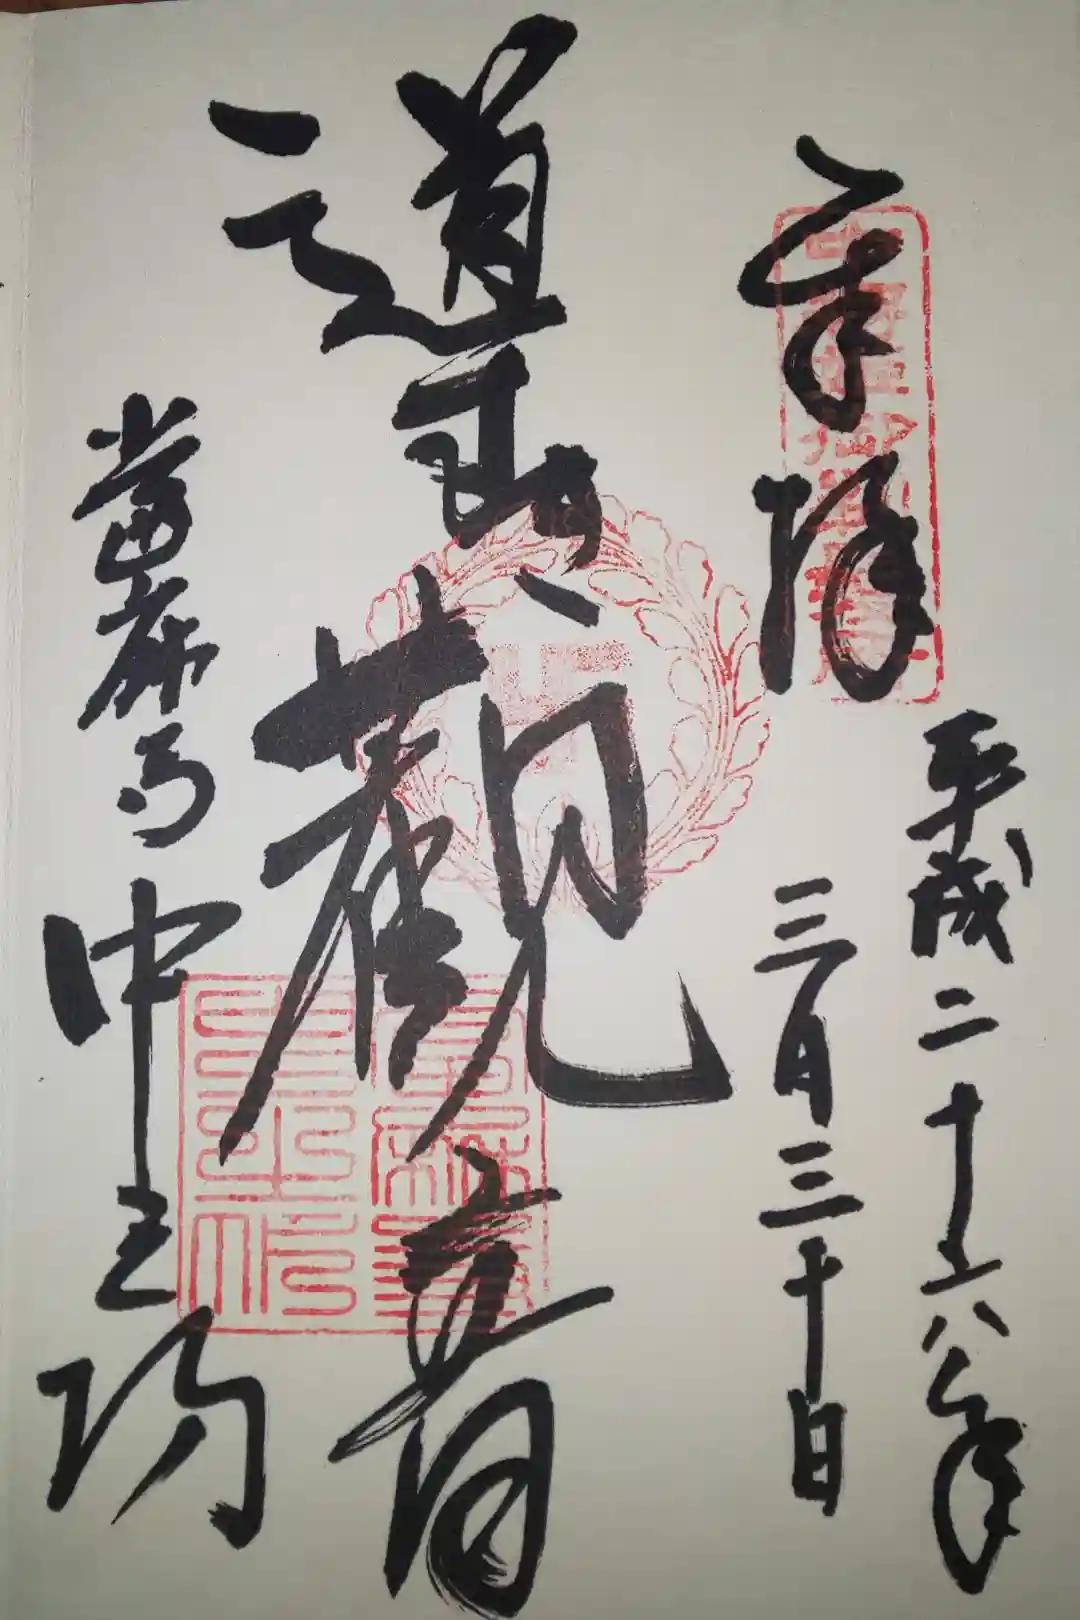 奉拝
平成二十六年
三月三十日
導き觀音
當麻寺中之坊